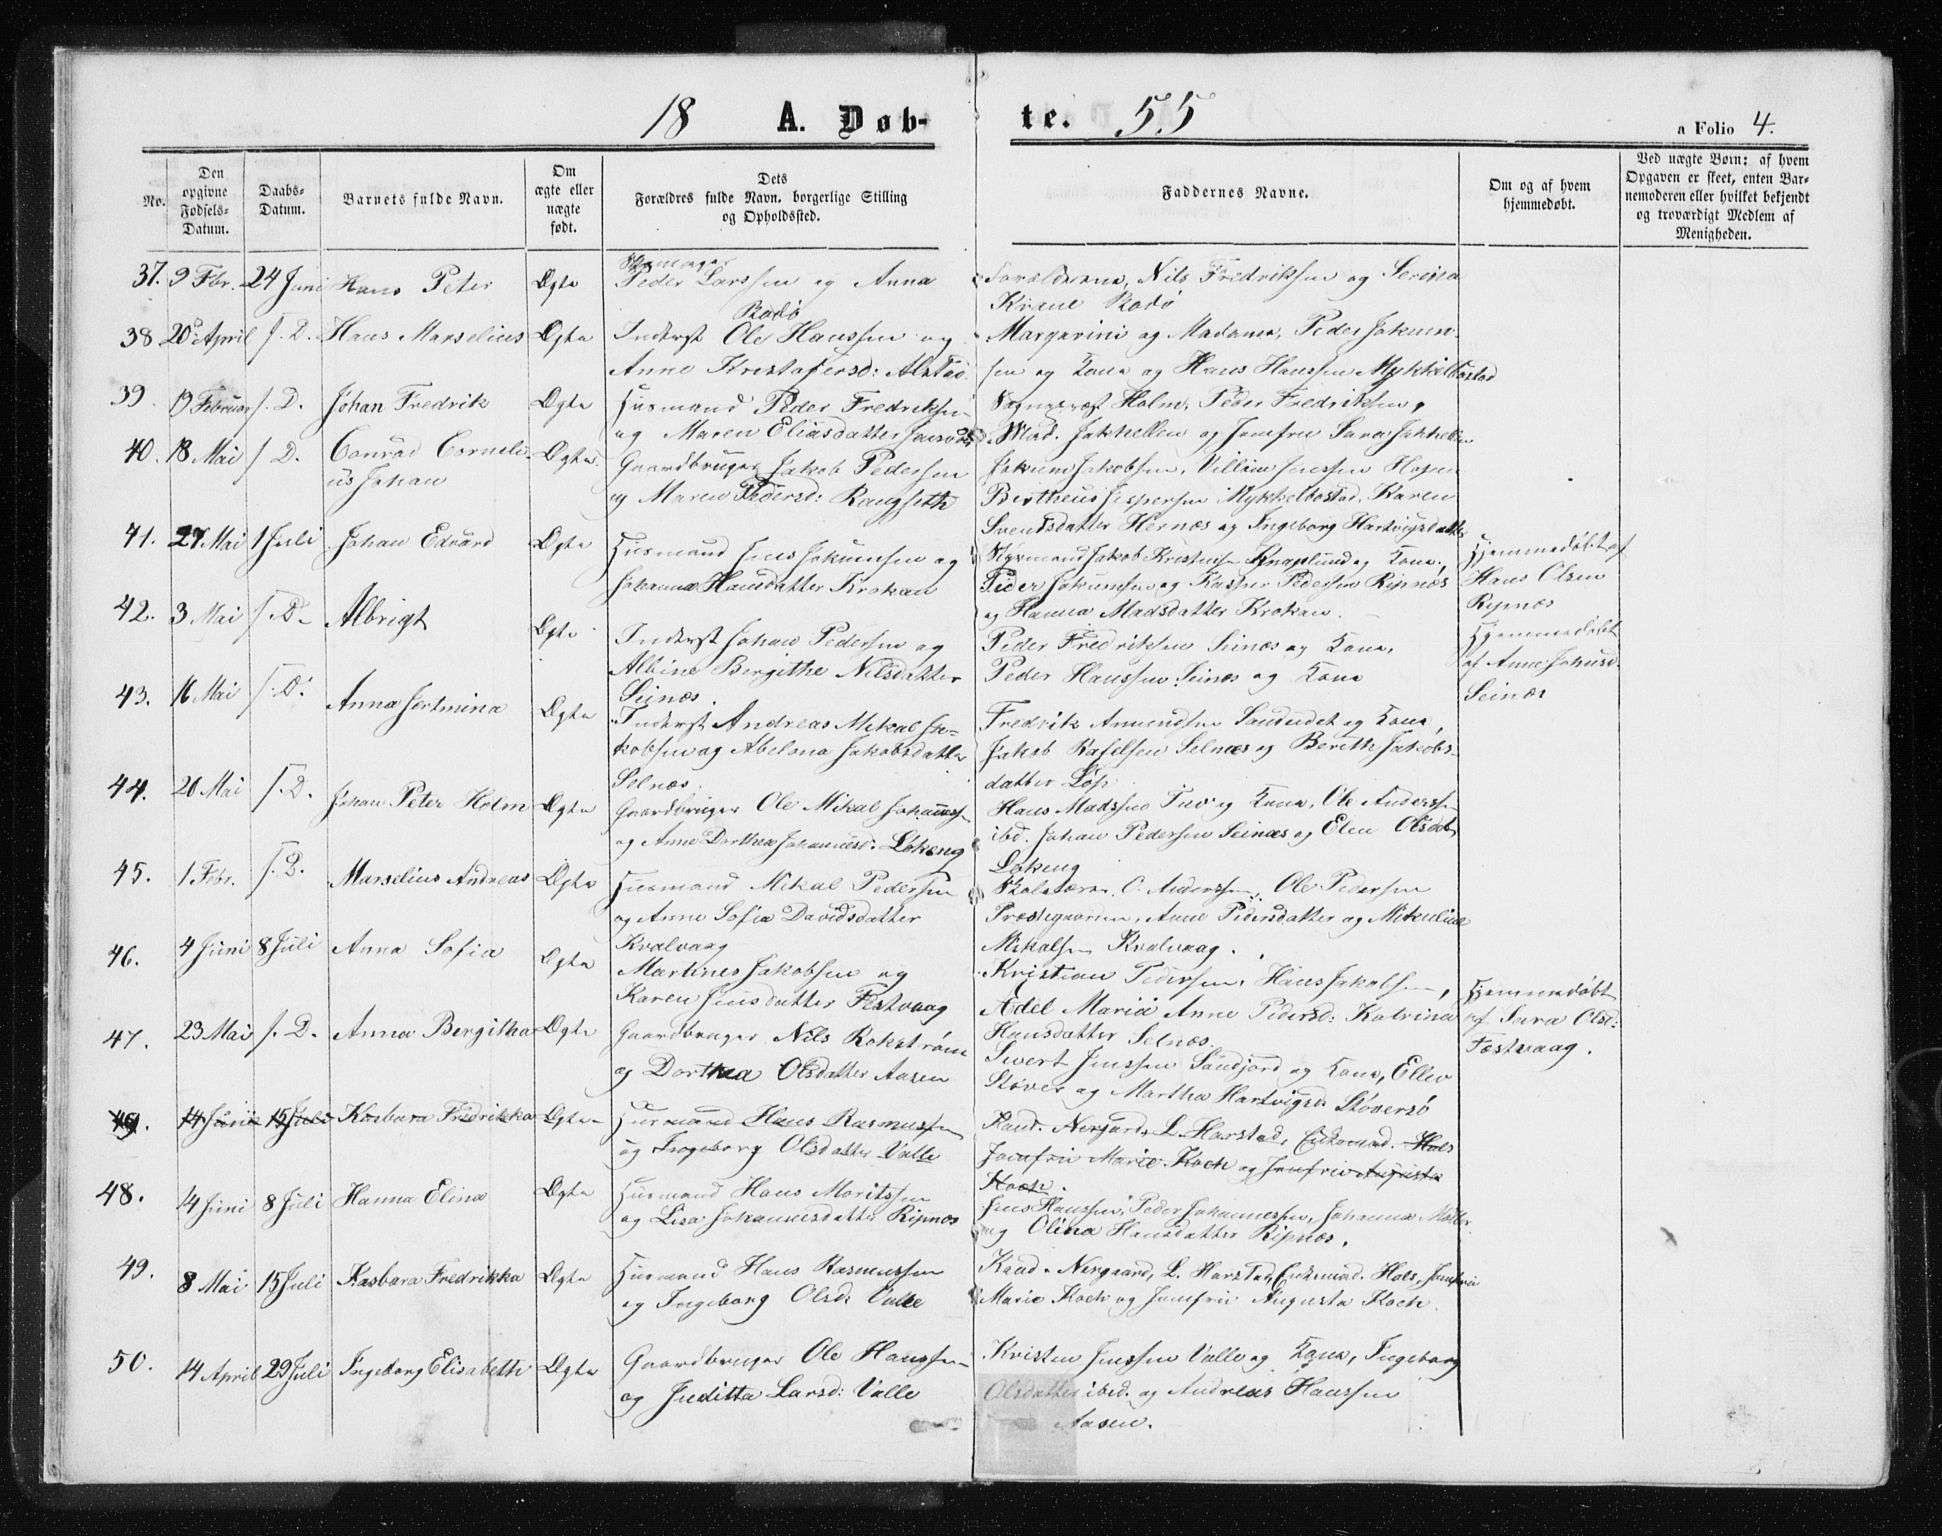 18 A. Døb- te. 55
a Folio 4.
No.
Den opgivne Fødsels-Datum.
Daabs-Datum.
Barnets fulde Navn.
Om ægte eller uægte født.
Dets Forældres fulde Navn, borgerlige Stilling og Opholdssted.
Faddernes Navne.
Om og af hvem hjemmedøbt.
Ved uægte Børn: af hvem Opgaven er skeet, enten Barnemoderen eller hvilket bekjendt og troværdigt Medlem af Menigheden.
37. 9 Febr. 24 Juni Hans Peter Ægte
Peder Larssen og Anna
Skadø
Forældrene, Nils Fredriksen og Serina
Skadø
38 20 April s. D. Hans Marselius Ægte
Inderst Ole Hanssen og
Anne Kristofersd: Alstad
Margarini og Madame, Peder Jakum-
sen og Kone og Hans Hanssen Mykkelbostad
39. 19 Februar s. D. Johan Fredrik Ægte
Husmand Peder Fredriksen
og Maren Eliasdatter
Holm, Peder Fredriksen,
Mad. Jakhellen og Jomfru Sara Jakhellen
40. 18 Mai s. D. Conrad Corneli-
us Johan Ægte
Gaardbruger Jakob Pedersen
og Maren Pedersd: Rangseth
Jakum Jakobsen, Villum Jenssen Hopen
Bertheus Jespersen Mykkelbostad, Karen
Svendsdatter Hernæs og Ingeborg Hartvigsdatter
41. 27 Mai 1 Juli Johan Edvard Ægte
Husmand Jens Jakumsen og
Johanna Hansdatter Krokan
Styrmand Jakob Kristensen Knaplund og Kone,
Peder Jakumsen og Kasper Pedersen Ripnæs
og Hanna Madsdatter Krokan.
Hjemmedøbt af
Hans Olsen
Ripnæs
42. 3 Mai s. D. Albrigt Ægte
Inderst Johan Pedersen og
Albine Bergithe Nilsdatter
Seinæs.
Peder Fredriksen Seinæs og Kone,
Peder Hanssen Seinæs og Kone
Hjemmedøbt
af Anne Johnsd.
Seinæs
43. 16 Mai s. D. Anna Jertmina Ægte
Inderst Andreas Mikal Ja-
kobsen og Abelona Jakobsdatter
Selnæs
Fredrik Amundsen Sundsdet og Kone,
Jakob Rafelsen Selnæs og Bereth Jakobs-
datter Løp
44. 20 Mai s. D. Johan Peter Holm Ægte
Gaardbruger Ole Mikal Johanness.
og Anne Dorthea Johannesd: Løkeng
Hans Madssen Tuv og Kone, Ole Anderssen
ibd. Johan Pedersen Seinæs og Elen Olsdatt
Løkeng
45. 1 Febr. s. D. Marselius Andreas Ægte
Husmand Mikal Pedersen
og Anne Sofia Davidsdatter
Kvalvaag
Skolelærer O. Anderssen, Ole Pedersen
Præstegaarden, Anne Pedersdatter og Mikaline
Mikalsen Kvalvaag.
46. 4 Juni 8 Juli Anna Sofia Ægte
Martines Jakobsen og
Karen Jensdatter Festvaag
Kristian Pedersen, Hans Jakobsen,
Adel Maria Anne Pedersd: Katrina
Hansdatter Selnæs.
Hjemmedøbt
af Sara Olsd:
Fæstvaag.
47. 23 Mai s. D. Anna Bergitha Ægte
Gaardbruger Nils Rokstrøm
og Dorthea Olsdatter Aasen
Sivert Jenssen Sandjord og Kone, Ellen
Støver og Martha Hartvigsd. Støversø
49. 14 Juni 15 Juli Karbara Fredrikka Ægte
Husmand Hans Rasmussen
og Ingeborg Olsdatter Valle
Kand. Nergard, L. Harstad, Enkemad. Hols
Jomfru Marie Koch og Jomfru Augusta
Koch.
48. 14 Juni 8 Juli Hanna Elina Ægte
Husmand Hans Moritssen
og Lisa Johannesdatter Ripnæs
Jens Hanssen, Peder Johannessen, Johanna Møller
og Olina Hansdatter Ripnæs.
49. 8 Mai 15 Juli Karbara Fredrikka Ægte
Husmand Hans Rasmussen
og Ingeborg Olsd: Valle
Kand. Nergaard, L. Harstad, Enkemad. Hols, Jomfru
Marie Koch og Jomfru Augusta Koch.
50. 14 April 29 Juli Ingeborg Elisabeth Ægte
Gaardbruger Ole Hanssen
og Juditta Larsd: Valle
Kristen Jenssen Valle og Kone, Ingeborg
Olsdatter ibid. og Andreas Hanssen
Aasen.